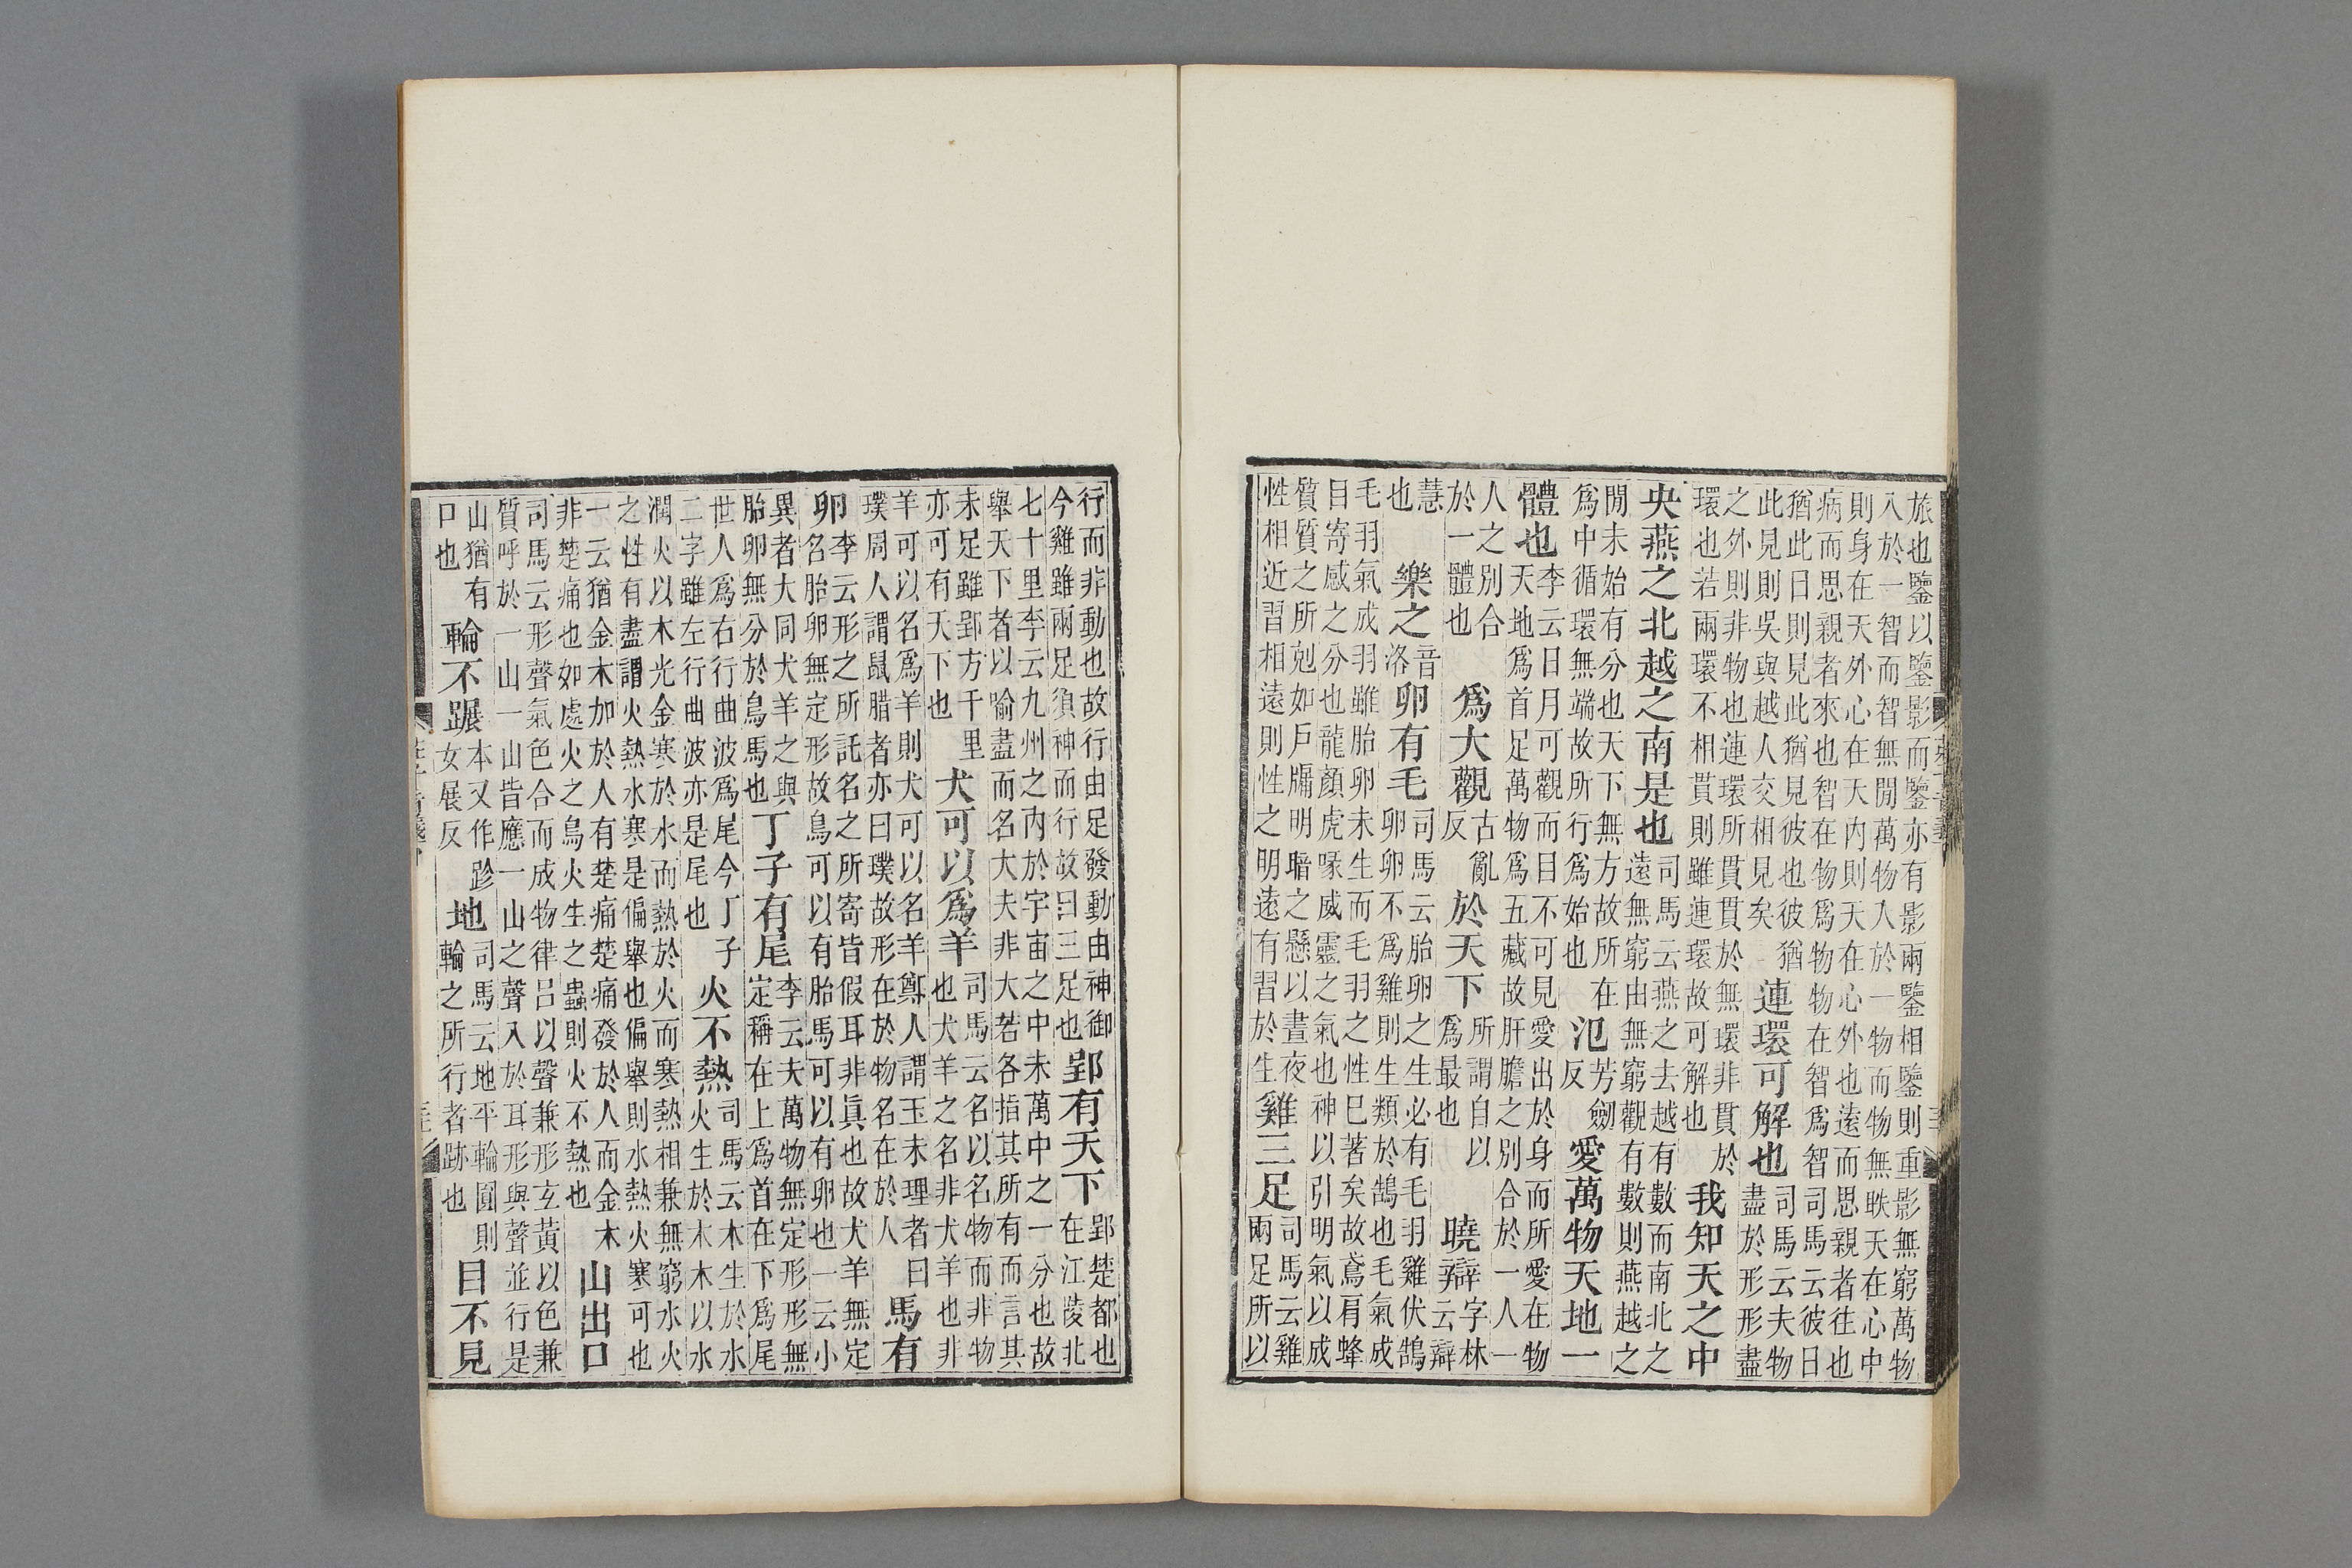 旅也鑒以鑒影而鑒亦有影兩鑒相鑒則重影無窮萬物
入於一智而智無閒萬物入於一物而物無眹天在心中
則身在天外心在天内則天在心外也遠而思親者往也
病而思親者來也智在物爲物物在智爲智司馬云彼日
猶此日則見此猶見彼也彼猶
此見則吳與越人交相見矣
連環可解也
司馬云夫物
盡於形形盡
之外則非物也連環所貫貫於無環非貫於
環也若兩環不相貫則雖連環故可解也
我知天之中
央燕之北越之南是也
司馬云燕之去越有數而南北之
遠無窮由無窮觀有數則燕越之
閒未始有分也天下無方故所在
爲中循環無端故所行爲始也
氾
芳劒
反
愛萬物天地一
體也
李云日月可觀而目不可見愛出於身而所愛在物
天地爲首足萬物爲五藏故肝膽之別合於一人一
人之別合
於一體也
爲大觀
古亂
反
於天下
所謂自以
爲最也
曉辯
字林
云辯
慧
也
樂之
音
洛
卵有毛
司馬云胎卵之生必有毛羽雞伏鵠
卵卵不爲雞則生類於鵠也毛氣成
毛羽氣成羽雖胎卵未生而毛羽之性已著矣故鳶肩蜂
目寄感之分也龍顏虎喙威靈之氣也神以引明氣以成
質質之所剋如戸牖明暗之懸以晝夜
性相近習相遠則性之明遠有習於生
雞三足
司馬云雞
兩足所以
行而非動也故行由足發動由神御
今雞雖兩足須神而行故曰三足也
郢有天下
郢楚都也
在江陵北
七十里李云九州之内於宇宙之中未萬中之一分也故
舉天下者以喻盡而名大夫非大若各指其所有而言其
未足雖郢方千里
亦可有天下也
犬可以爲羊
司馬云名以名物而非物
也犬羊之名非犬羊也非
羊可以名爲羊則犬可以名羊鄭人謂玉未理者曰
璞周人謂鼠腊者亦曰璞故形在於物名在於人
馬有
卵
李云形之所託名之所寄皆假耳非眞也故犬羊無定
名胎卵無定形故鳥可以有胎馬可以有卵也一云小
異者大同犬羊之與
胎卵無分於鳥馬也
丁子有尾
李云夫萬物無定形形無
定稱在上爲首在下爲尾
世人爲右行曲波爲尾今丁子
二字雖左行曲波亦是尾也
火不熱
司馬云木生於水
火生於木木以水
潤火以木光金寒於水而熱於火而寒熱相兼無窮水火
之性有盡謂火熱水寒是偏舉也偏舉則水熱火寒可也
一云猶金木加於人有楚痛楚痛發於人而金木
非楚痛也如處火之鳥火生之蟲則火不熱也
山出口
司馬云形聲氣色合而成物律吕以聲兼形玄黃以色兼
質呼於一山一山皆應一山之聲入於耳形與聲並行是
山猶有
口也
輪不蹍
本又作跈
女展反
地
司馬云地平輪圓則
輪之所行者跡也
目不見